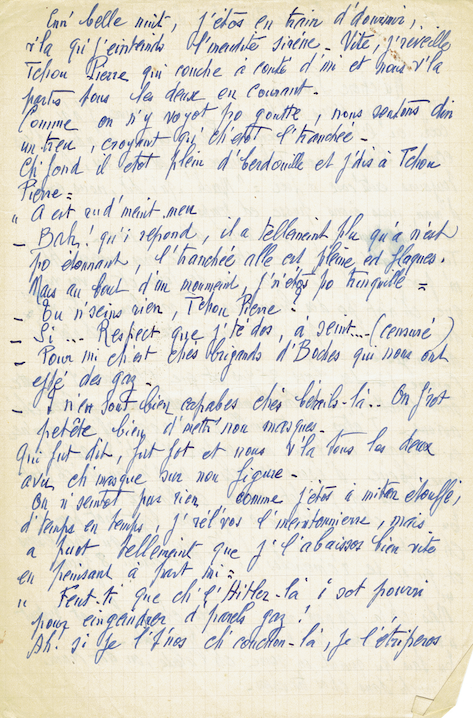 Enn' belle nuit, j'étos en train d'dourmir,
v'la qu'j'eintends l'meudite sirène. Vite, j'réveille
Tchou Pierre qui couche à conté d'mi et nous v'la
partis tous les deux en courant.
Comme on n'y voyot po goutte, nous sautons din
un treu, croyant qu'ch'étot l'tranchée.
Ch'fond il étot plein d'berdouille et j'dis à Tchou
Pierre =
" A est rud'meint meu
_ Bah! qu'i répond, il a tellemeint plu qu'a n'est
po étonnant. L'tranchée alle est pleine ed flaques.
Mais au bout d'un moumeint, j'n'étos po tranquille =
_ Tu n'seins rien, Tchou Pierre _
_ Si ... Respect que j'té dos, à seint... (censuré)
_ Pour mi ch'est chés brigands d'Boches qui nous ont
effé des gaz _
_ I n'en sont bien capabes chés bétails-là.. On f'rot
petête bien d'mett' nou masques _
Qui fut dit, fut fot et nous v'la tous les deux
avu ch'masque sur nou figure _
On n'seintot pus rien comme j'étos à mitan étouffé,
d'temps en temps, j'rél'vos l'meintonnière, mais
a puot tellement que j'l'abaissos bien vite
en peinsant à part mi =
" Feut-ti que ch'l'Hitler-là i sot pourri
pour eingendrer d'parels gaz !
Ah! si je l't'nos ch'couchon-là, je l'étriperos